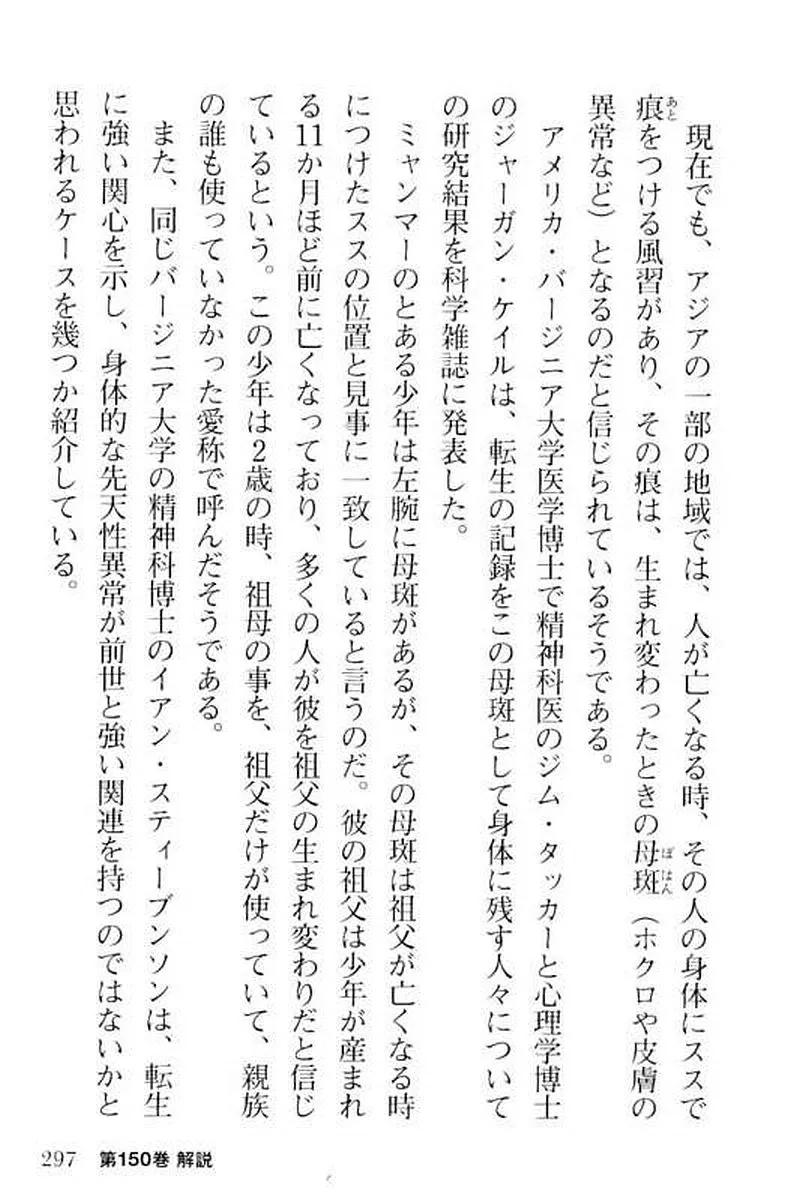 現在でも、アジアの一部の地域では、人が亡くなる時、その人の身体にススで
痕をつける風習があり、その痕は、生まれ変わったときの母斑（ホクロや皮膚の
異常など）となるのだと信じられているそうである。
アメリカ・バージニア大学医学博士で精神科医のジム・タッカーと心理学博士
のジャーガン・ケイルは、転生の記録をこの母斑として身体に残す人々について
の研究結果を科学雑誌に発表した。
ミャンマーのとある少年は左腕に母斑があるが、その母斑は祖父が亡くなる時
につけたススの位置と見事に一致していると言うのだ。彼の祖父は少年が産まれ
る11か月ほど前に亡くなっており、多くの人が彼を祖父の生まれ変わりだと信じ
ているという。この少年は2歳の時、祖母の事を、祖父だけが使っていて、親族
の誰も使っていなかった愛称で呼んだそうである。
また、同じバージニア大学の精神科博士のイアン・スティーブンソンは、転生
に強い関心を示し、身体的な先天性異常が前世と強い関連を持つのではないかと
思われるケースを幾つか紹介している。
あと
ぼはん
297 第150巻 解説